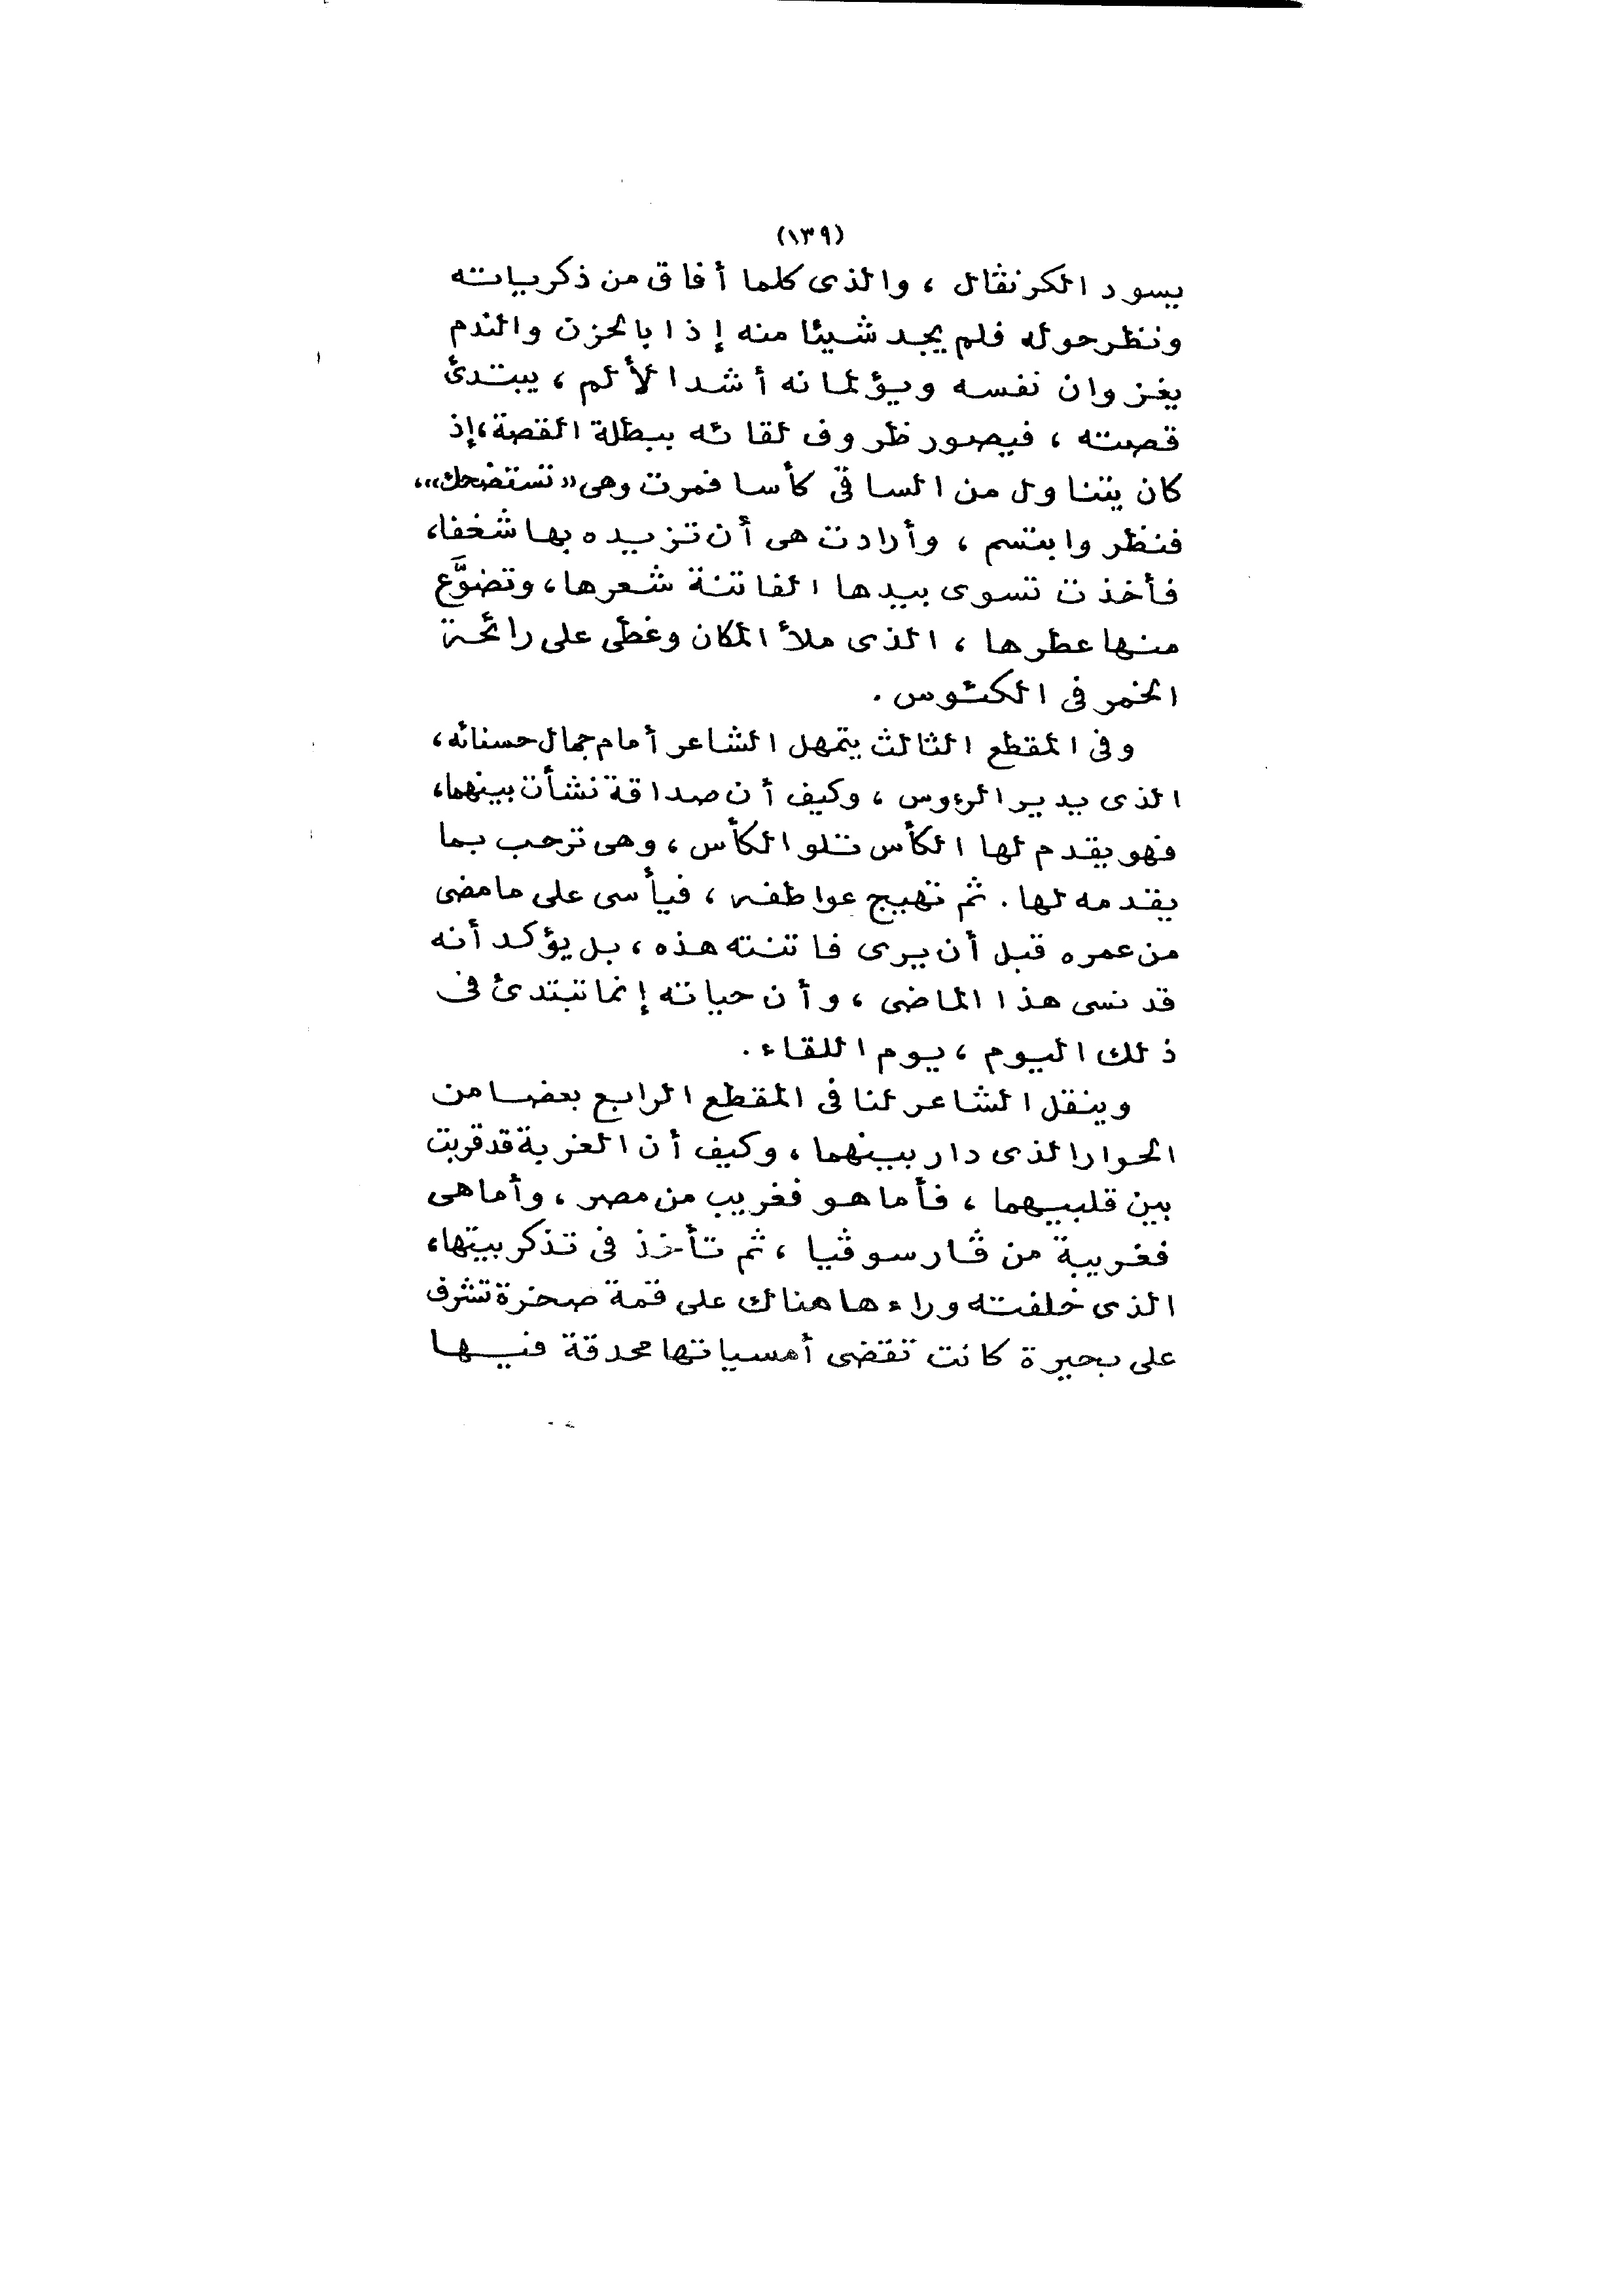 (١٣٩)
يسود الكرنڤال ، والذى كلما أفاق من ذكرياته
ونظر حوله فلم يجد شيئا منه إذا بالحزن والندم
يغزوان نفسه ويؤلمانه أشد الألم ، يبتدئ
قصته ، فيصور ظروف لقائه ببطلة القصة ، إذ
كان يتناول من الساقى كأسا فمرت وهى «تستضحك» ،
فنظر وابتسم ، وأرادت هى أن تزيده بها شغفا ،
فأخذت تسوى بيدها الفاتنة شعرها ، وتضوَّع
منها عطرها ، الذى ملأ المكان وغطى على رائحة
الخمر فى الكئوس .
وفى المقطع الثالث يتمهل الشاعر أمام جمال حسنائه ،
الذى يدير الرءوس ، وكيف أن صداقة نشأت بينهما ،
فهو يقدم لها الكأس تلو الكأس ، وهى ترحب بما
يقدمه لها . ثم تهيج عواطفه ، فيأسى على ما مضى
من عمره قبل أن يرى فاتنته هذه ، بل يؤكد أنه
قد نسى هذا الماضى ، وأن حياته إنما تبتدئ فى
ذلك اليوم ، يوم اللقاء .
وينقل الشاعر لنا فى المقطع الرابع بعضا من
الحوار الذى دار بينهما ، وكيف أن الغربة قد قربت
بين قلبيهما ، فأما هو فغريب من مصر ، وأما هى
فغريبة من ڤارسوڤيا ، ثم تأخذ فى تذكر بيتها ،
الذى خلفته وراءها هناك على قمة صخرة تشرف
على بحيرة كانت تقضى أمسياتها محدقة فيها